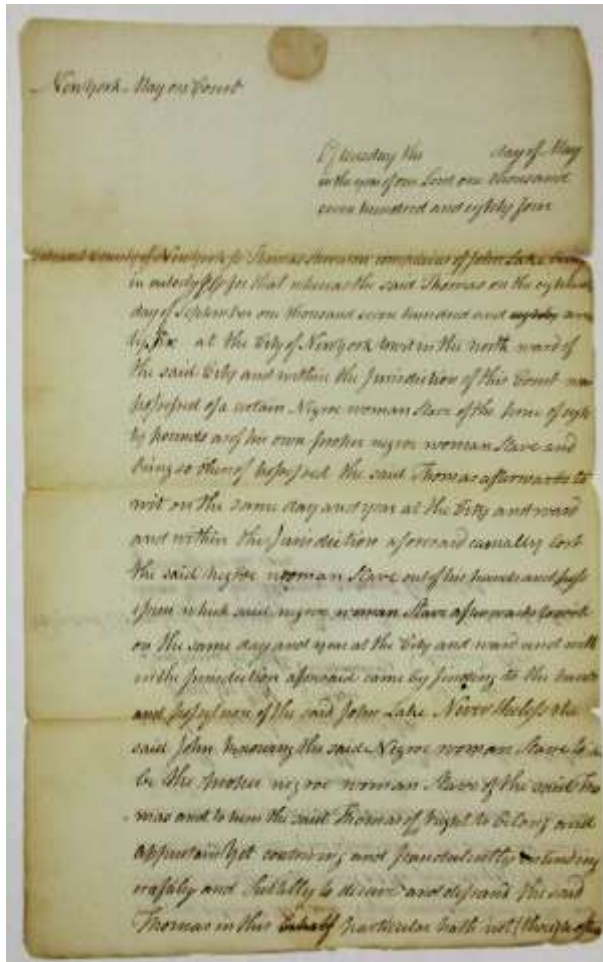 New York Mayors Court
Of tuesday the day of May
in the year of our Lord one thousand
seven hundred and eighty four
County of New York ss Thomas complains of John Lake being
in custody &c for that whereas the said Thomas on the
day of September one thousand seven hundred and
six at the City of New york to wit in the north ward of
the said City and within the Jurisdiction of this Court was
possessed of a certain Negroe woman Slave of the price of eigh
ty pounds as of his own proper negroe woman Slave and
being so thereof possessed the said Thomas afterwards to
wit on the same day and year at the City and ward
and within the Jurisdiction aforesaid casually lost
the said negroe woman Slave out of his hands and poss
ession which said negroe woman Slave afterwards to wit
on the same day and year at the City and ward and with
in the jurisdiction aforesaid came by finding to the hands
and possession of the said John Lake Nevertheless the
said John knowing the said Negroe woman Slave to
be the proper negroe woman Slave of the said Tho
mas and to him the said Thomas of right to belong and
appertain yet contriving and fraudulently intending
craftily and Subtilly to deceive and defraud the said
Thomas in this behalf particular hath not (though often